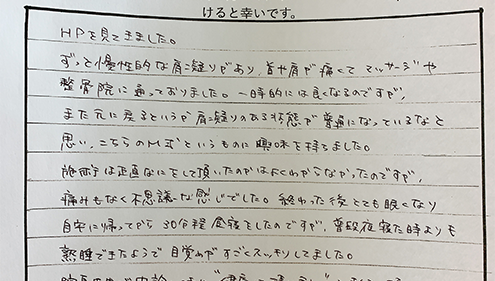 けると幸いです。
HPを見てきました。
ずっと慢性的な肩こり凝りがあり、首や肩が痛くてマッサージや
整骨院に通っておりました。一時的には良くなるのですが、
また元に戻るというか肩凝りのある状態が普通になっているなと
思い、こちらのM式というものに興味を持てました。
施術は正直なにをして頂いたのかはよくわからなかったのですが、
痛みもなく不思議な感じでした。終わった後とても眠くなり
自宅に帰ってから30分程昼寝をしたのですが、普段夜寝た時よりも
熟睡できたようで目覚めがすごくスッキリしてました。